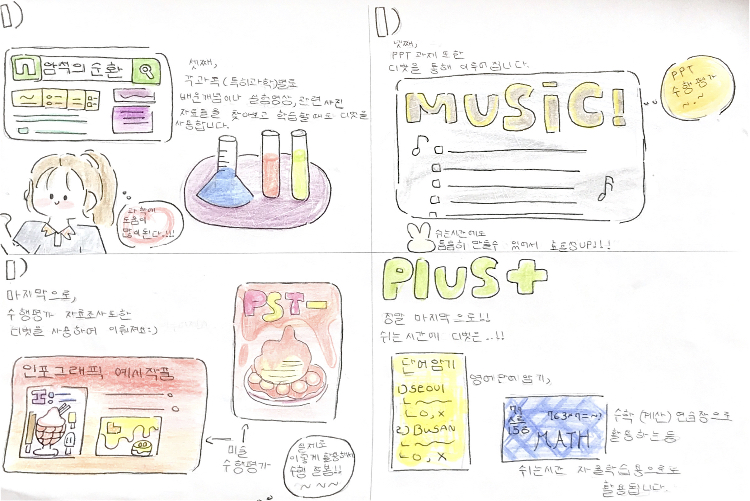 1)
암석의 순환
셋째,
각과목(특히과학)별로
배운개념이나 실험영상, 관련사진
자료들을 찾아보고 학습할때도 디벗을
사용합니다.
과학에
도움이
많이된다..!!!
1)
넷째,
PPT 과제 또한
디벗을 통해 이루어집니다.
PPT
수행평가
~.~
MUSIC!
쉬는시간에도
틈틈히 만들수 있어서 효율성UP!!!
1)
마지막으로,
수행평가 자료조사도한
디벗을 사용하여 이뤄져요:)
인포그래픽 예시작품
PST-
미술
수행평가
이렇게 활용해서
Plus+
정말 마지막으로!!!
쉬는시간에 디벗은..!!
단어암기
1) SEOUL
ㄴ O, X
2) BUSAN
ㄴ O, X
영어단어암기,
763×9=~)
MATH
수학 (계산) 연습장으로
활용하는등
쉬는시간 자율학습용으로도
활용됩니다.